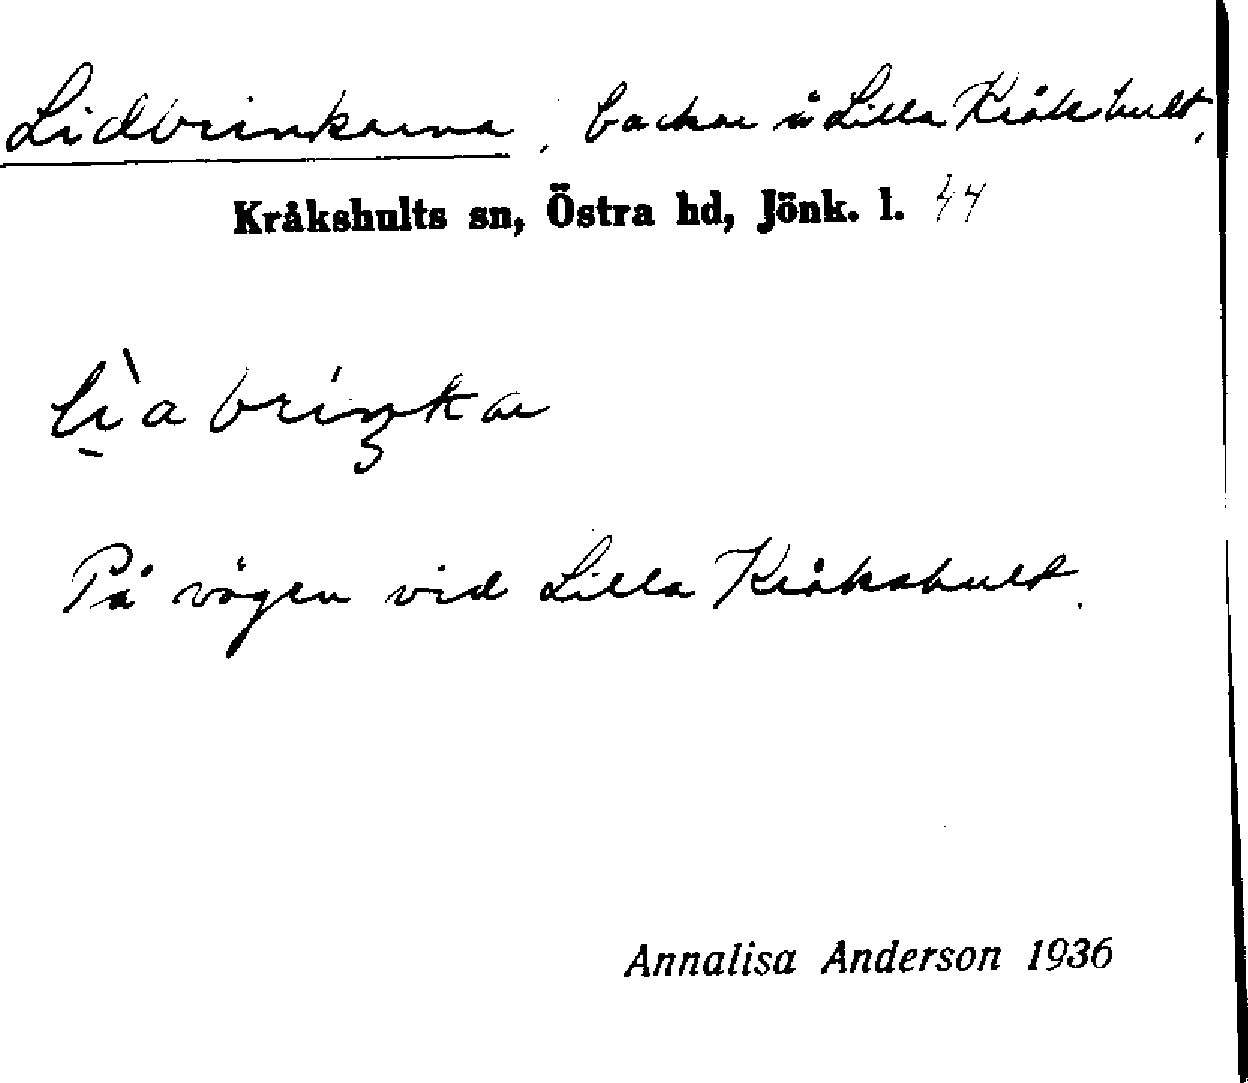 Lidbrinkarna, backar å Lilla Kråkshult,
Kråkshults sn, Östra hd, Jönk. l. 44
lìa bríŋkar
På vägen vid Lilla Kråkshult.
Annalisa Anderson 1936